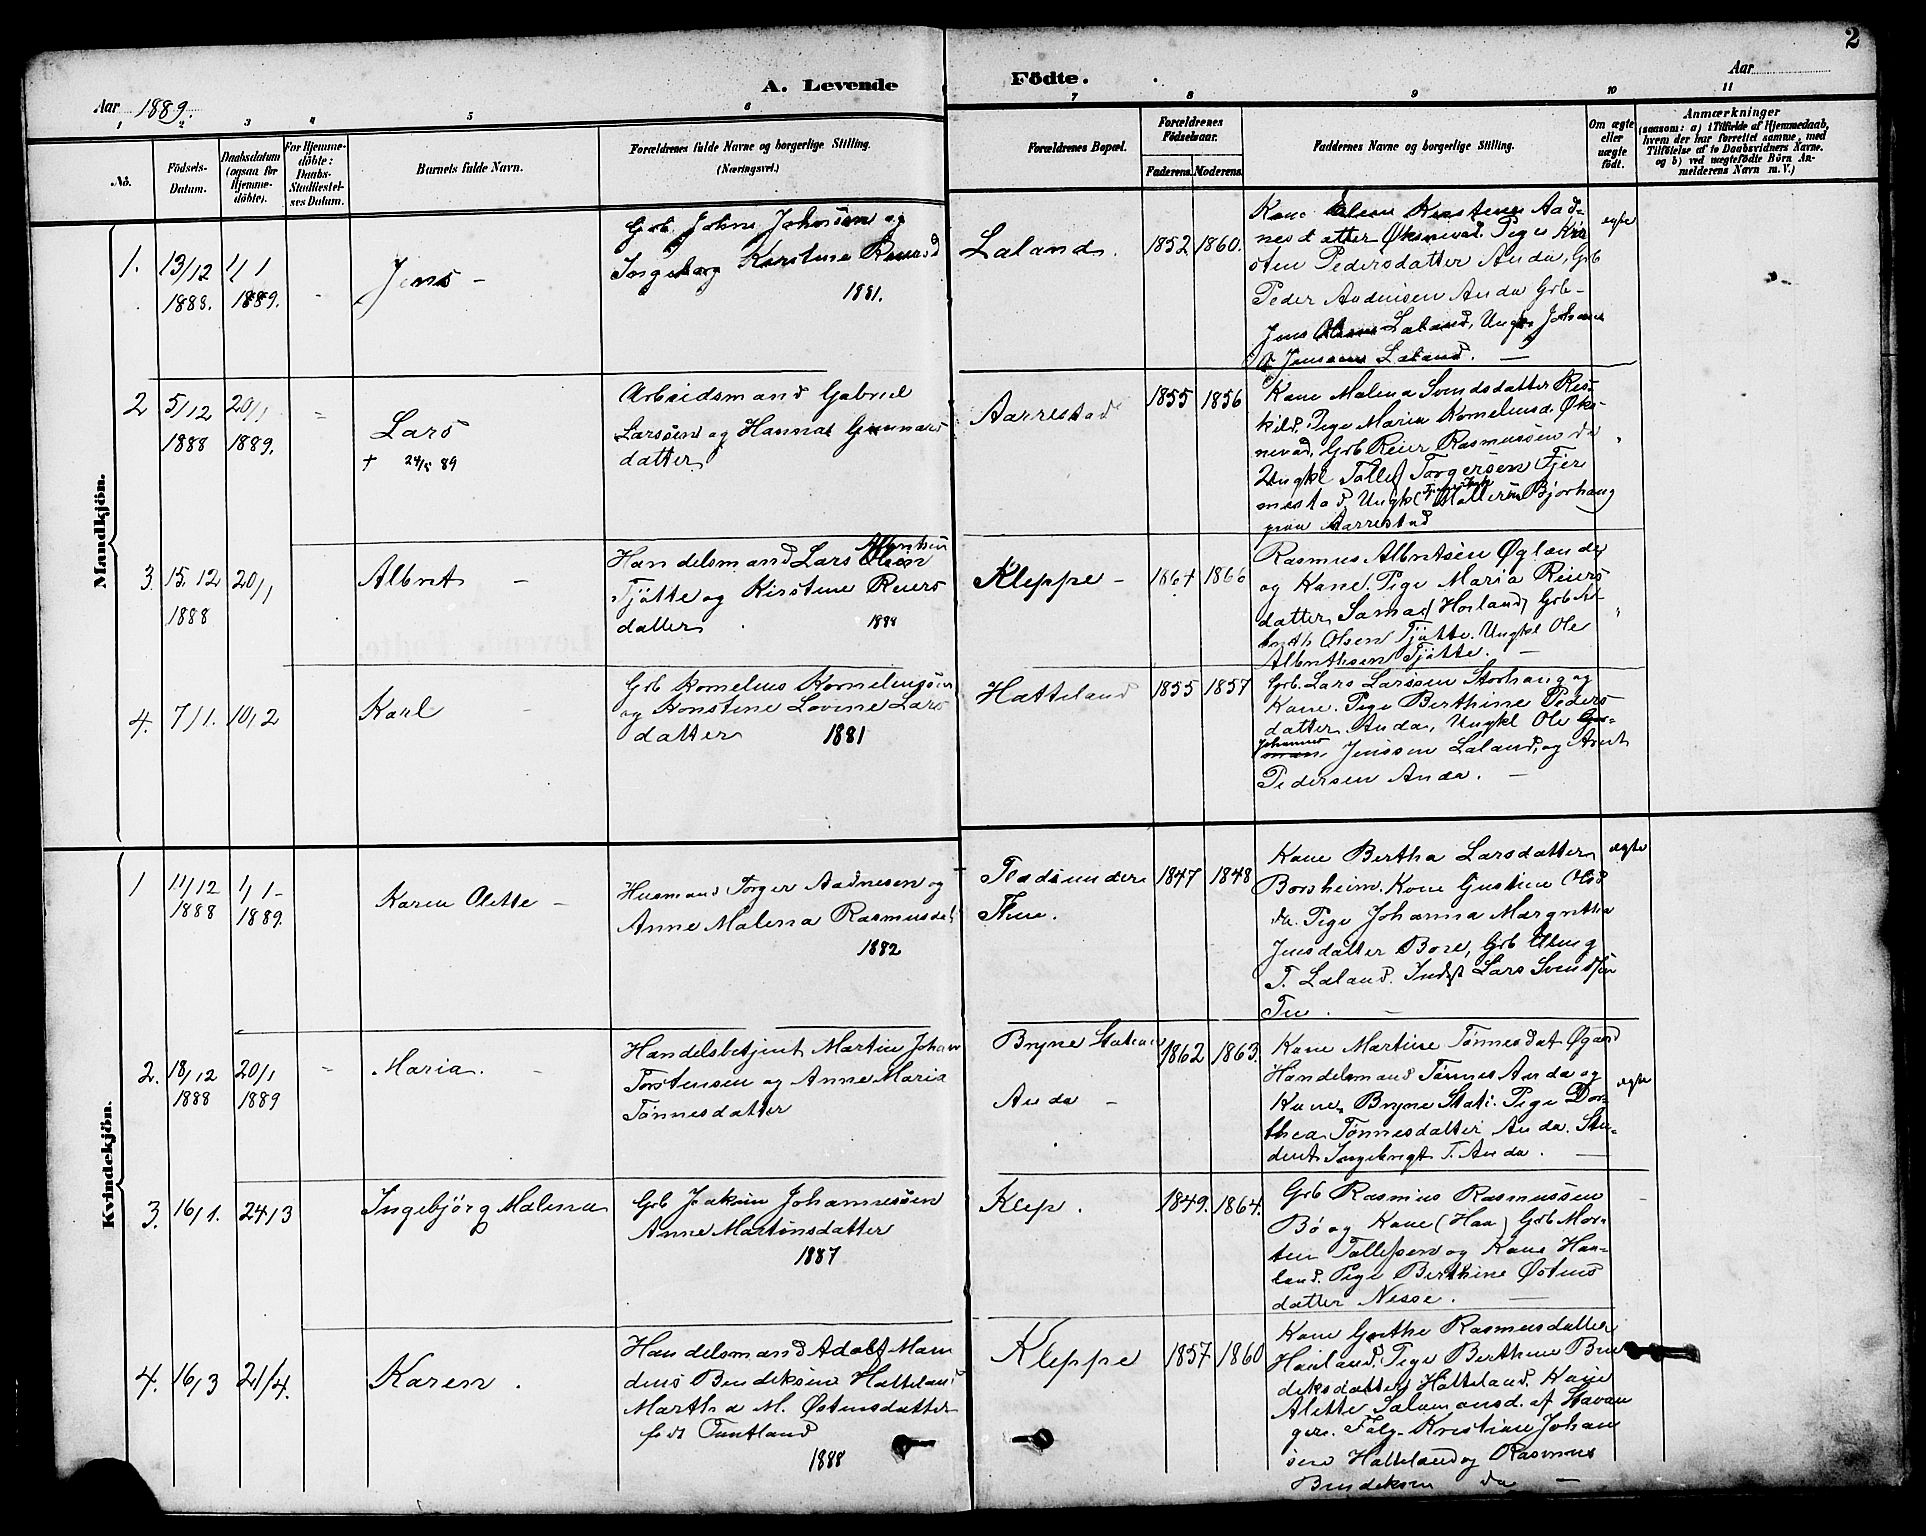 2
A. Levende Födte.
Aar 1889.
Aar
1 2 3 4 5 6 7 8 9 10 11
No.
Födsels-
Datum.
Daabsdatum
(ogsaa for
Hjemme-
döbte).
For Hjemme-
döbte:
Daabs-
Stadfæstel-
ses Datum.
Barnets fulde Navn.
Forældrenes fulde Navne og borgerlige Stilling.
(Næringsvei.)
Forældrenes Bopæl.
Forældrenes
Födselsaar.
Faderens. Moderens.
Faddernes Navne og borgerlige Stilling.
Om ægte
eller
uægte
födt.
Anmærkninger
(saasom: a) i Tilfælde af Hjemmedaab,
hvem der har forrettet samme, med
Tilföielse af to Daabsvidners Navne,
og b) ved uægtefödte Börn An-
melderens Navn m. V.)
Mandkjön.
1.
13/12
1888.
1/1
1889.
Jens -
Grb. Johns Johnsen og
Ingeborg Kirstine Reiersd
1881.
Laland.
1852 1860.
Kone Kirstine Aad-
nesdatter Øksnevad. Pige Kir
sten Pedersdatter Anda, Grb
Peder Aadnesen Anda Grb-
Jens Laland, Ungk Johannes
Jensen Laland. -
egte
2
5/12
1888
20/1
1889.
Lars
+ 24/5 89
Arbeidsmand Gabriel
Larssen og Hanna Gunnars
datter
Aarrestad
1855 1856
Kone Malena Svendsdatter Ros-
kild. Pige Maria Kornelinsd. Øks-
nevad. Grb Reier Rasmussen da
Ungkl Tollef Torgersen Fjer
mestad, Ungkl Bjorhaug
paa Aarrestad
3.
15. 12
1888
20/1
Albert -
Handelsmand Lars Olsen
Albretsen
Tjøtte og Kirstine Reiers
datter
1888
Kleppe -
1864 1866
Rasmus Albretsen Øglænde
og Kone. Pige Maria Reiers
datter Sama (Horland) Grb Al
breth Olsen Tjøtte. Ungkl Ole
Albrethsen Tjøtte. -
4.
7/1.
10/2
Karl -
Grb Kornelius Korneliussen
og Konstine Lovine Lars
datter 1881
Hatteland
1855 1857
Grb. Lars Larssen Storhaug og
Kone. Pige Berthine Peders
datter Anda, Ungkl Ole
Johannes
Jenssen Laland, og Arnt
Pedersen Anda. -
Kvindekjön.
1
11/12
1888
1/1-
1889.
Karen Olette -
Husmand Torger Aadnesen og
Anne Malena Rasmusdat
1882
Pladsunder
Thu.
1847 1848
Kone Bertha Larsdatter
Borsheim. Kone Gustine Olsd
da. Pige Johanna Margretha
Jensdatter Bore, Grb
T. Laland. Lars Svendsen
Tu. -
egte
2.
18/12
1888
20/1
1889
Maria. -
Handelsbetjent Martin Johan
Torstensen og Anne Maria
Tønnesdatter
Bryne Station
Anda -
1862 1863.
Kone Martine Tønnesdat Øgard
Handelsmand Tønnes Anda og
Kone, Bryne Stati. Pige Dor-
thea Tønnesdatter Anda. Stu-
dent Ingebrigt T. Anda. -
egte
3.
16/1.
24/3
Ingebjörg Malena
Grb Joakim Johannesen
Anne Martinsdatter
1887
Klep.
1849. 1864.
Grb Rasmus Rasmussen
Bö og Kone (Haa) Grb Mor-
ten Tollefsen og Kone Haa-
land. Pige Berthine Østens
datter Nesse. -
4.
16/3
21/4.
Karen.
Handelsmand Adolf Man
dius Bendiksen Hatteland
Martha M. Østensdatter
født Tuntland
1888
Kleppe
1857 1860
Kone Grethe Rasmusdatter
Hauland. Pige Berthine Ben
deksdatter Hatteland. Kone
Alette Salamonsd. af Stavan
ger. Kristian Johan
sen Hatteland og Rasmus
Bendiksen da -